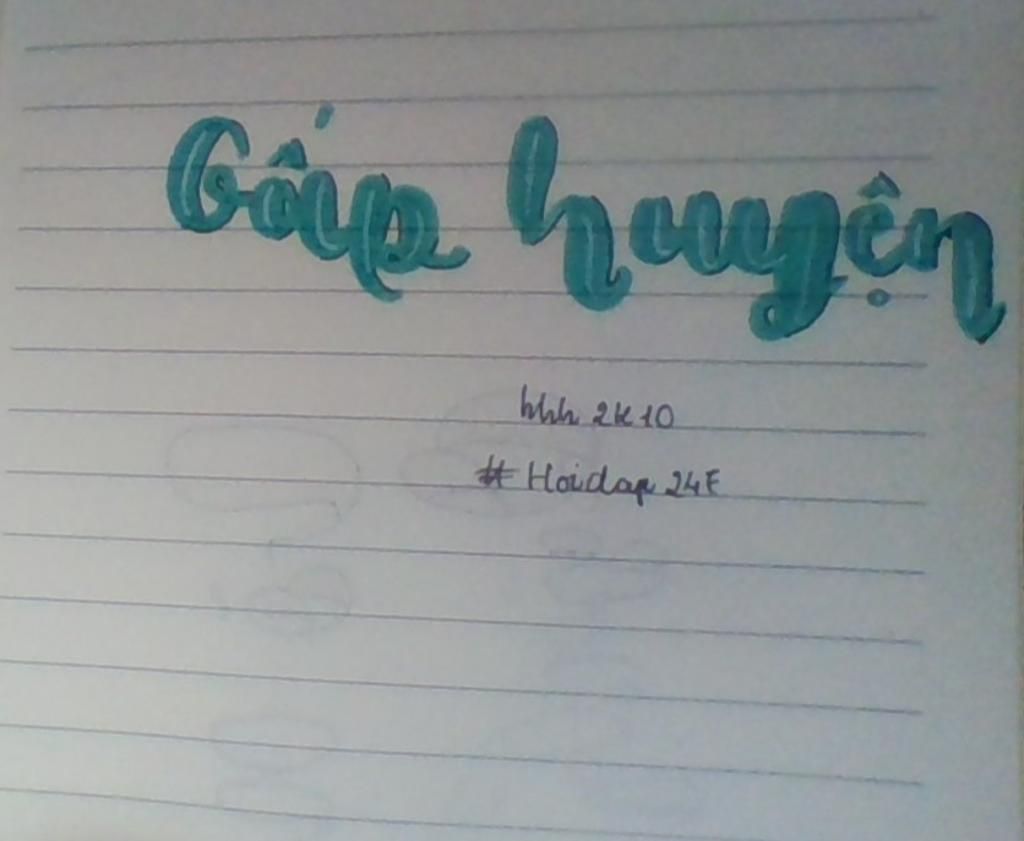 Gấp huyện
hhh 2k10
# Hoidap 24E